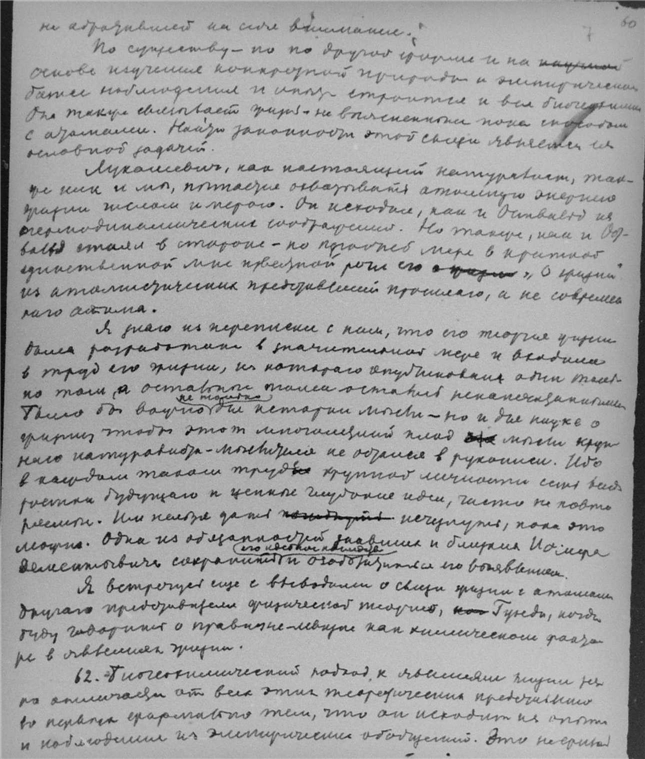 60
не обратившей на себя внимание.
По существу – но по другой форме и на научной
основе изучения конкретной природы и эмпирически
более наблюдения и опыта строится и вся биогеохимия
Она также связывает жизнь – не выясненным пока способом
с атомами. Найти законности этой связи является их
основной задачей.
Лукашевич, как настоящий натуралист, так-
же как и мы, пытается охватывать атомную энергию
жизни числом и мерою. Он исходил, как и Оствальд из
термодинамических соображений. Но также, как и Ост-
вальд стоял в стороне – по крайней мере в краткой
единственной мне известной речи его „О жизни"
из атомистических представлений прошлого, а не современ
ного атома.
Я знаю из переписки с ним, что его теория жизни
была разработана в значительной мере и входила
в труд его жизни, из которого опубликован один
но том, а остальные тома остались ненапечатанными
Было бы важно не только для истории мысли – но и для науке о
жизни, чтобы этот многолетний плод мысли круп
ного натуралиста-мыслителя не остался в рукописи. Ибо
в каждом таком труде крупной личности есть всегда
ростки будущего и ценные глубокие идеи, часто не повто
ряемые. Им нельзя дать исчезнуть, пока это
можно. Одна из обязанностей знавших и близких Иосифа
Дементьевича сохранить его наследие и озаботиться его выявлением.
Я встречусь еще с выводами о связи жизни с атомами
другого представителя физической теории, Гуйе, когда
буду говорить о правизне-левизне как химическом факто
ре в явлениях жизни.
62. Биогеохимический подход к явлениям жизни рез
ко отличается от всех этих теоретических представлений
во первых тем, что он исходит из опыта
и наблюдения из эмпирических обобщений. Это не